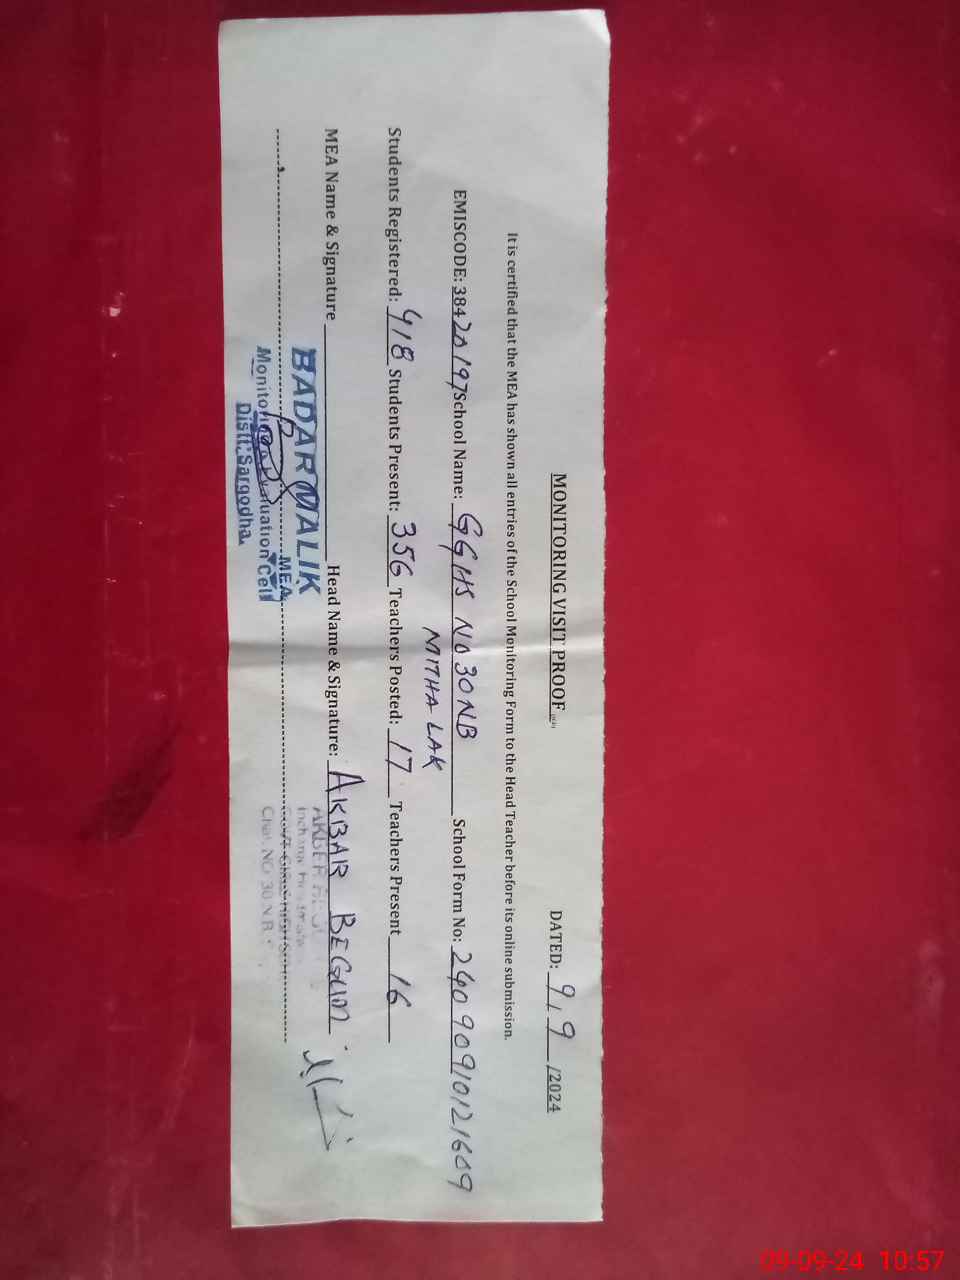 MONITORING VISIT PROOF DATED: 9/9/2024
It is certified that the MEA has shown all entries of the School Monitoring Form to the Head Teacher before its online submission.
EMISCODE: 38420197 School Name: GGHS NO 30NB School Form No: 2409091012 1609
MITHA LAK
Students Registered: 418 Students Present: 356 Teachers Posted: 17 Teachers Present 16
MEA Name & Signature Head Name & Signature: AKBAR BEGUM
BADAR MALIK
MEA
Monitoring Evaluation Cell
Distt. Sargodha.
Chak NO 30 N.B
09-09-24 10:57